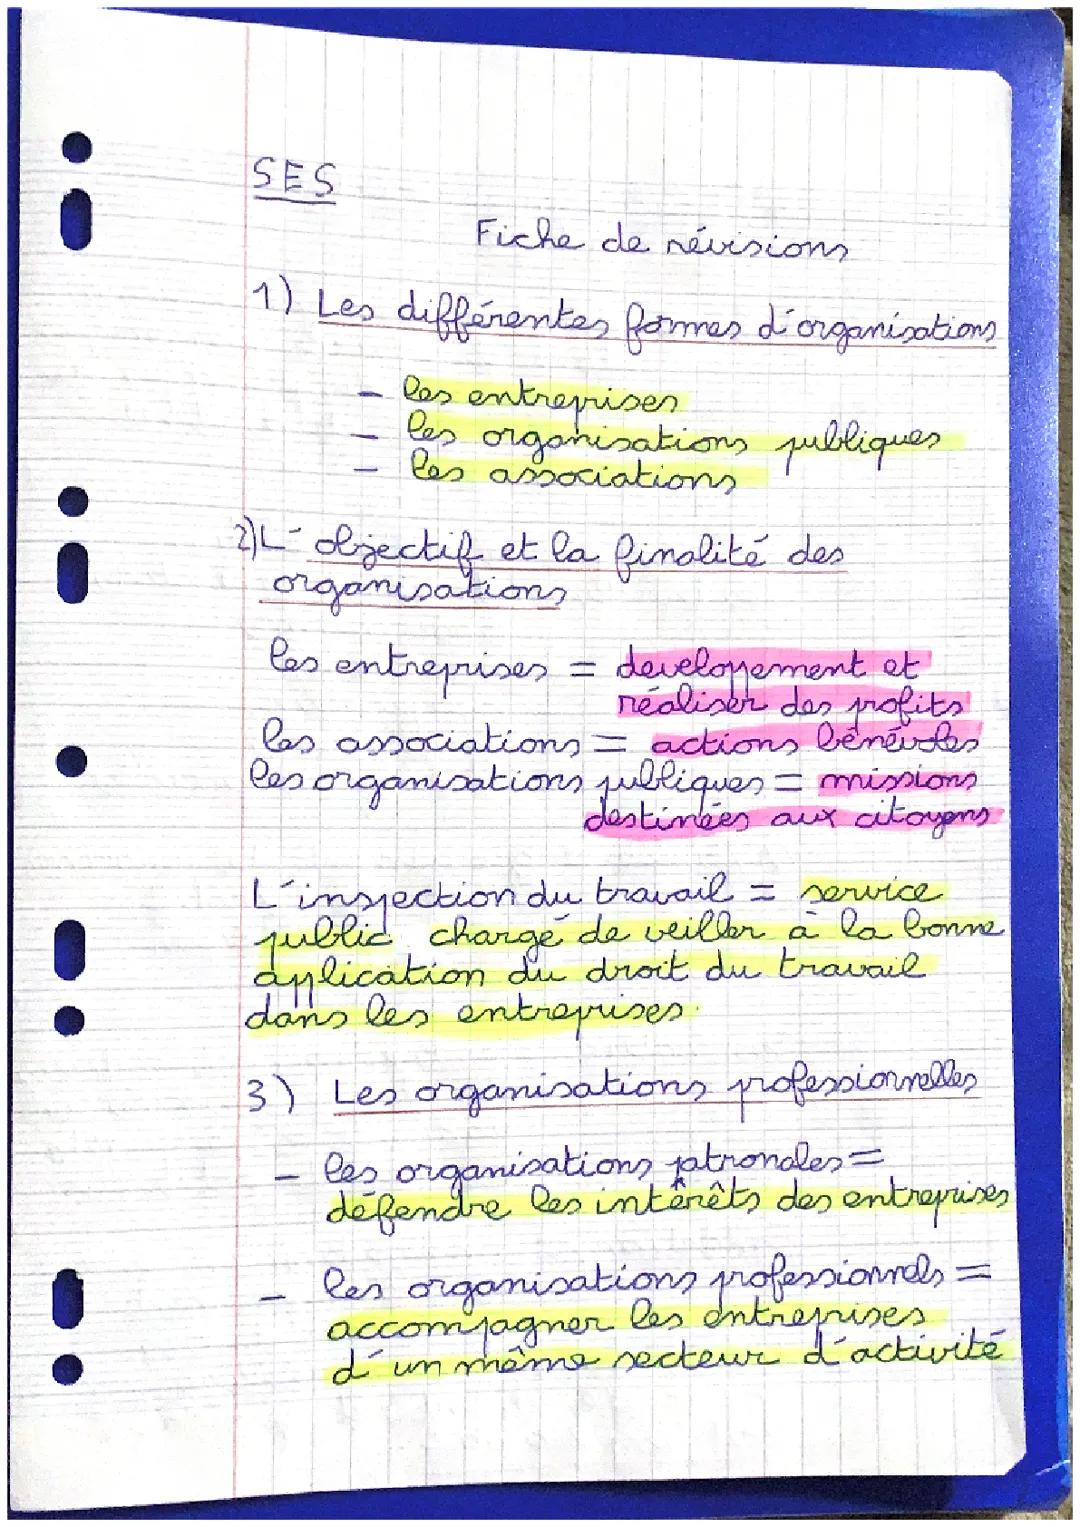 SES
Fiche de révisions
1) Les différentes formes d'organisations
- les entreprises
- les organisations publiques
- les associations
2) L'objectif et la finalité des
organisations
les entreprises = developpement et
réaliser des profits
les associations = actions bénévoles
les organisations publiques = missions
destinées aux citoyens
L'inspection du travail = service
public chargé de veiller à la bonne
application du droit du travail
dans les entreprises.
3) Les organisations professionnelles
- les organisations patronales =
défendre les intêrêts des entreprises
- les organisations professionnels =
accompagner les entreprises
d'un même secteur d'activité